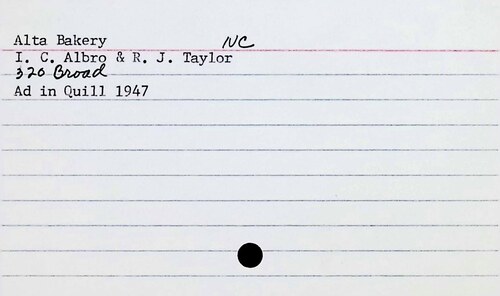 Alta Bakery NC
I. C. Albro & R. J. Taylor
320 Broad
Ad in Quill 1947